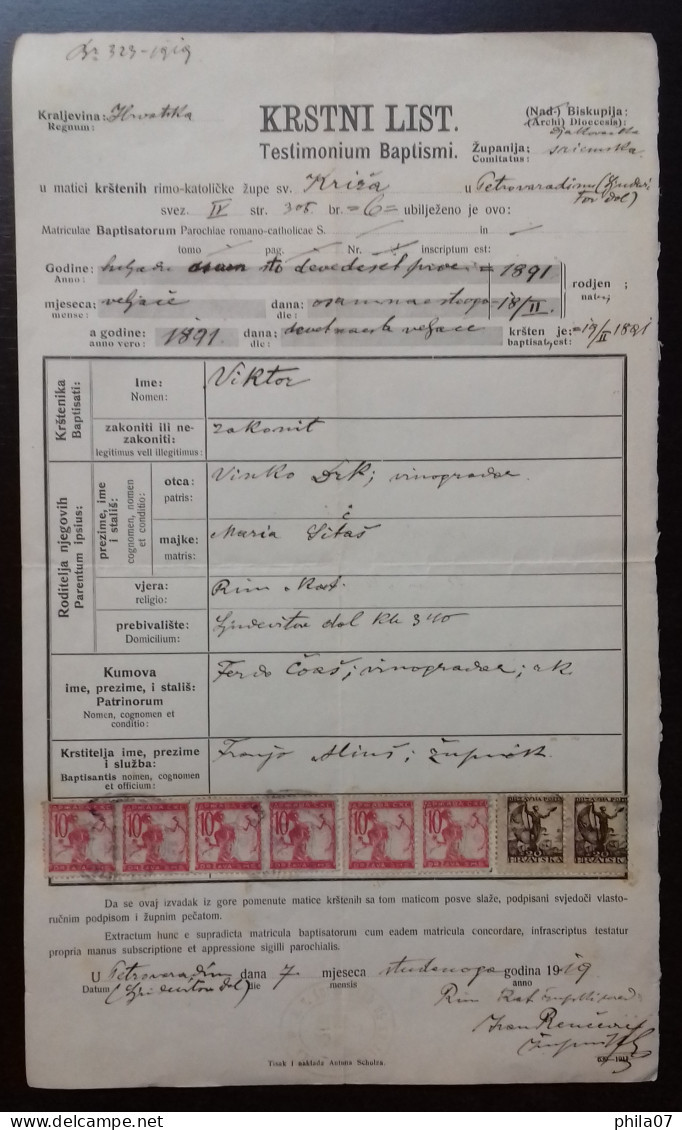 Br 323-1919
Kraljevina: Hrvatska
Regnum:
KRSTNI LIST.
Testimonium Baptismi.
(Nad-) Biskupija:
(Archi) Dioecesis):
Djakovacka
Županija: sriemska
Comitatus:
u matici krštenih rimo-katoličke župe sv. Križa u Petrovaradinu
svez. IV str. 308 br. =6= ubilježeno je ovo:
dol)
Matriculae Baptisatorum Parochiae romano-catholicae S. in
tomo pag. Nr. inscriptum est:
Godine: hiljadu osam sto devedeset prve = 1891
Anno:
rodjen ;
natus ;
mjeseca: veljače dana: osamnaestoga 18/II.
mense: die:
a godine: 1891. dana: devetnaeste veljače kršten je: = 19/II 1891
anno vero: die: baptisatus est:
Krštenika
Baptisati:
Ime: Viktor
Nomen:
zakoniti ili ne-
zakoniti: zakonit
legitimus vell illegitimus:
Roditelja njegovih
Parentum ipsius:
prezime, ime
i stališ:
cognomen, nomen
et conditio:
otca: Vinko Drk; vinogradar
patris:
majke: Maria
matris:
vjera: Rim. kat.
religio:
prebivalište: Ljudevitov dol kb 340
Domicilium:
Kumova
ime, prezime, i stališ: Ferdo; vinogradar; rk.
Patrinorum
Nomen, cognomen et
conditio:
Krstitelja ime, prezime
i služba: Franjo; župnik
Baptisantis nomen, cognomen
et officium:
10 10 10 10 10 10
HRVATSKA HRVATSKA
Da se ovaj izvadak iz gore pomenute matice krštenih sa tom maticom posve slaže, podpisani svjedoči vlasto-
ručnim podpisom i župnim pečatom.
Extractum hunc e supradicta matricula baptisatorum cum eadem matricula concordare, infrascriptus testatur
propria manus subscriptione et appressione sigilli parochialis.
U Petrovaradinu dana 7. mjeseca studenoga godina 1919
Datum die mensis anno
(Ljudevitov dol)
Rim kat
Ivan
župnik
Tisak i naklada Antuna Schulza.
phila07